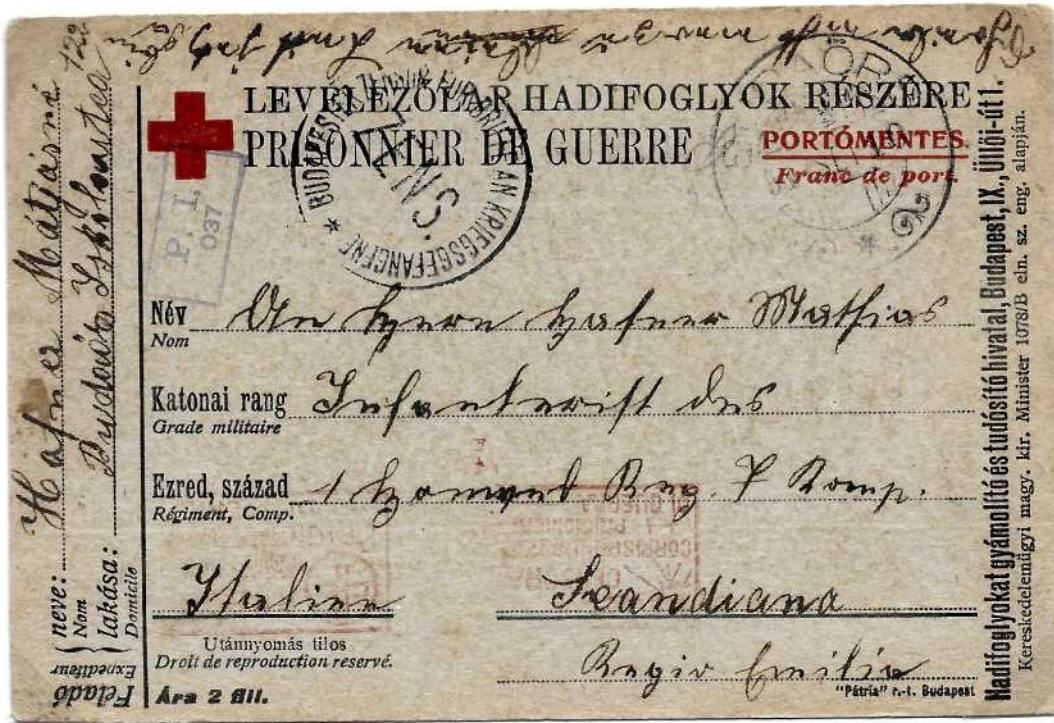 LEVELEZŐLAP HADIFOGLYOK RÉSZÉRE
PRISONNIER DE GUERRE
PORTÓMENTES.
Franc de port.
BUDAPEST ZENSUR FÜR KRIEGSGEFANGENE
P. I.
037
Név An Herrn Hafner Mathias
Nom
Katonai rang Infanterist des
Grade militaire
Ezred, század 1 Honved Reg. 7 Komp.
Régiment, Comp.
Italien Scandiana
Regio Emilia
Utánnyomás tilos
Droit de reproduction reservé.
Ára 2 fill.
"Pátria" r.-t. Budapest
Feladó
Expéditeur
neve: Hafner Mátjásné
Nom
lakása: Budaörs
Domicile
Hadifoglyokat gyámolító és tudósító hivatal, Budapest, IX., Üllői-út 1.
Kereskedelemügyi magy. kir. Minister 1078/B eln. sz. eng. alapján.